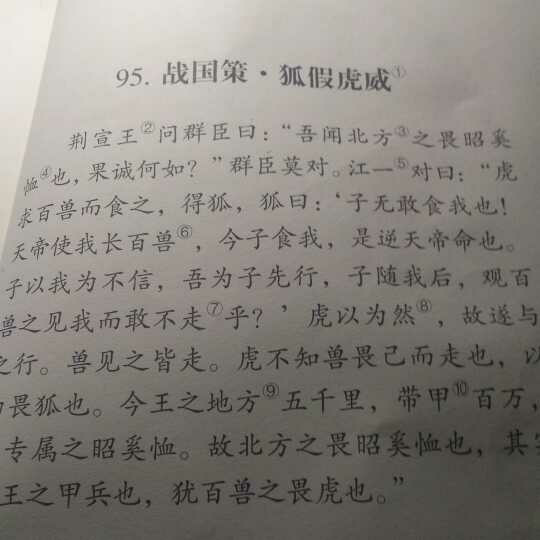 95. 战国策·狐假虎威①
荆宣王②问群臣曰：“吾闻北方③之畏昭奚
恤④也，果诚何如？”群臣莫对。江一⑤对曰：“虎
求百兽而食之，得狐，狐曰：‘子无敢食我也！
天帝使我长百兽⑥，今子食我，是逆天帝命也。
子以我为不信，吾为子先行，子随我后，观百
兽之见我而敢不走⑦乎？’虎以为然⑧，故遂与
之行。兽见之皆走。虎不知兽畏己而走也，以
畏狐也。今王之地方⑨五千里，带甲⑩百万，
专属之昭奚恤。故北方之畏昭奚恤也，其
王之甲兵也，犹百兽之畏虎也。”